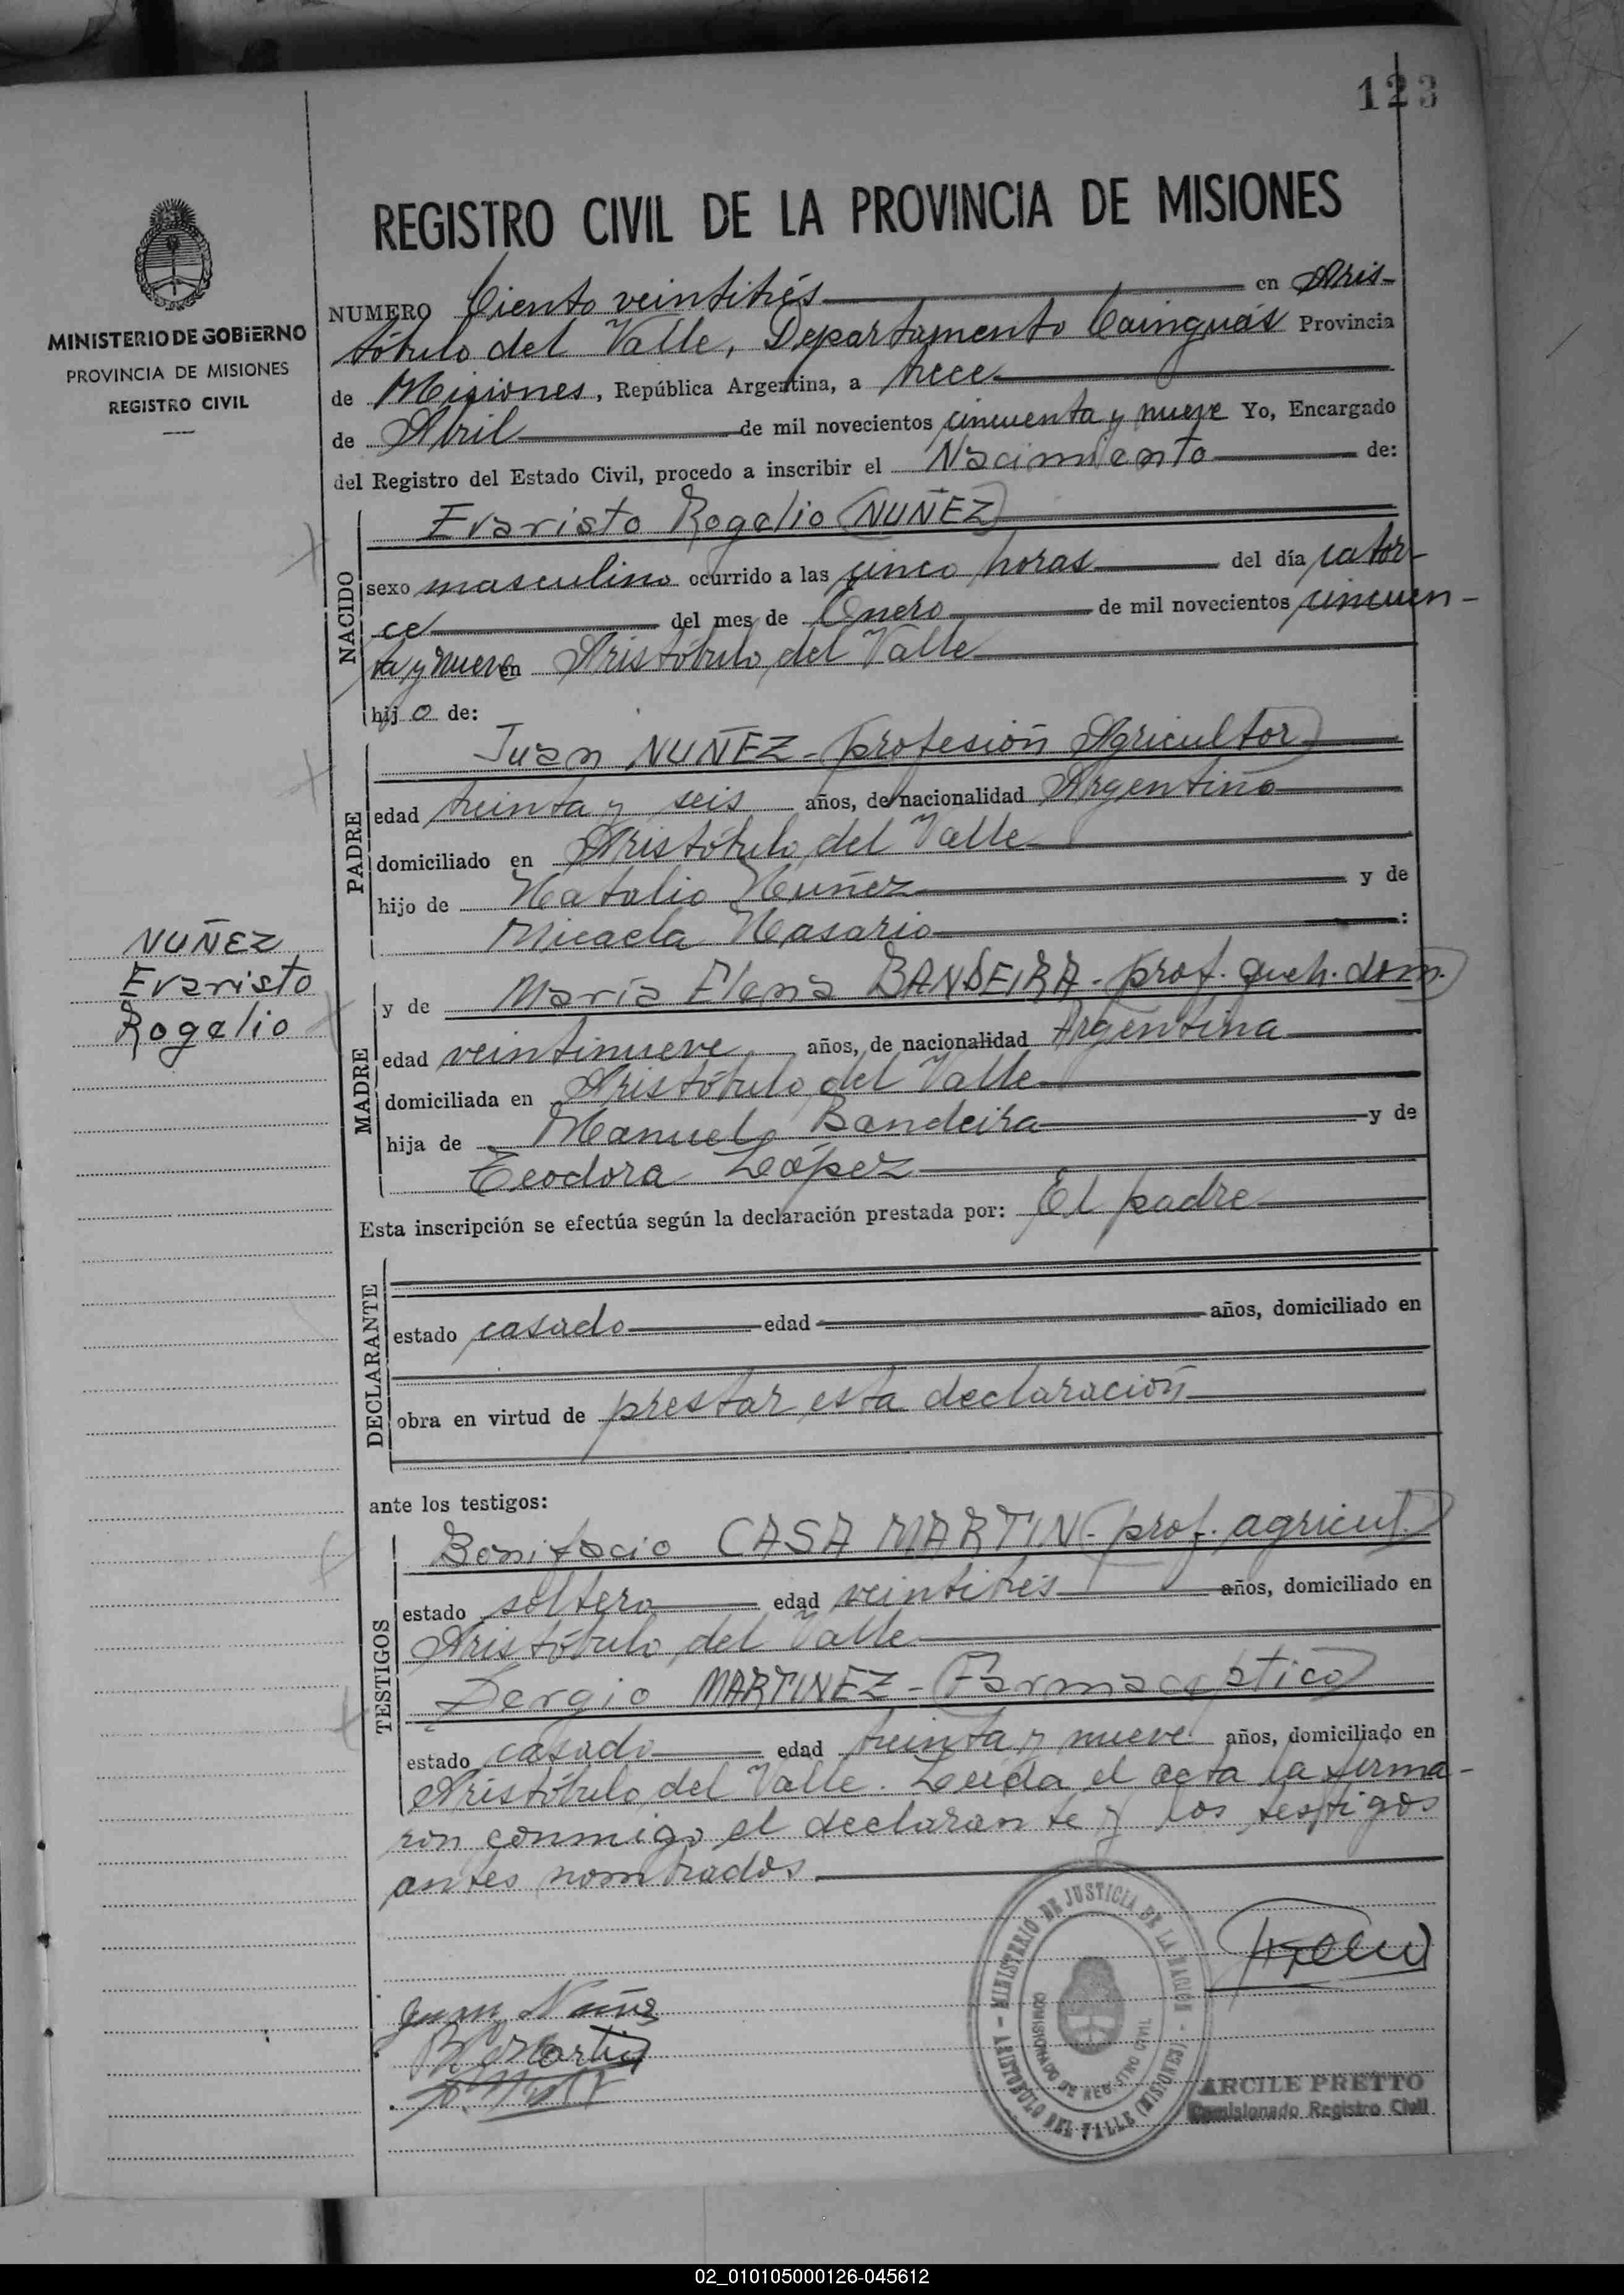 123
MINISTERIO DE GOBIERNO
PROVINCIA DE MISIONES
REGISTRO CIVIL
NUÑEZ
Evaristo
Rogelio
REGISTRO CIVIL DE LA PROVINCIA DE MISIONES
NUMERO Ciento veintitrés en Aris-
tóbulo del Valle, Departamento Cainguás Provincia
de Misiones, República Argentina, a trece
de Abril de mil novecientos cincuenta y nueve Yo, Encargado
del Registro del Estado Civil, procedo a inscribir el Nacimiento de:
NACIDO
Evaristo Rogelio (NUÑEZ)
sexo masculino ocurrido a las cinco horas del día cator-
ce del mes de Enero de mil novecientos cincuen-
ta y nueve en Aristóbulo del Valle
hijo de:
PADRE
Juan NUÑEZ - (profesión Agricultor)
edad treinta y seis años, de nacionalidad Argentino
domiciliado en Aristóbulo del Valle
hijo de Natalio Nuñez y de
Micaela Nasario :
MADRE
y de María Elena BANDEIRA - prof. queh. dom.)
edad veintinueve años, de nacionalidad Argentina
domiciliada en Aristóbulo del Valle
hija de Manuel Bandeira y de
Teodora López
Esta inscripción se efectúa según la declaración prestada por: El padre
DECLARANTE
estado casado edad años, domiciliado en
obra en virtud de prestar esta declaración
ante los testigos:
TESTIGOS
Bonifacio CASA MARTIN - (prof. agricul.)
estado soltero edad veintitrés años, domiciliado en
Aristóbulo del Valle
Sergio MARTINEZ - (Farmaceptico)
estado casado edad treinta y nueve años, domiciliado en
Aristóbulo del Valle. Leída el acta la firma-
ron conmigo el declarante y los testigos
antes nombrados
Juan Nuñez
MINISTERIO DE JUSTICIA DE LA NACION - ARISTOBULO DEL VALLE (MISIONES) -
COMISIONADO DE REGISTRO CIVIL
ARCILE PRETTO
Comisionado Registro Civil
02_010105000126-045612